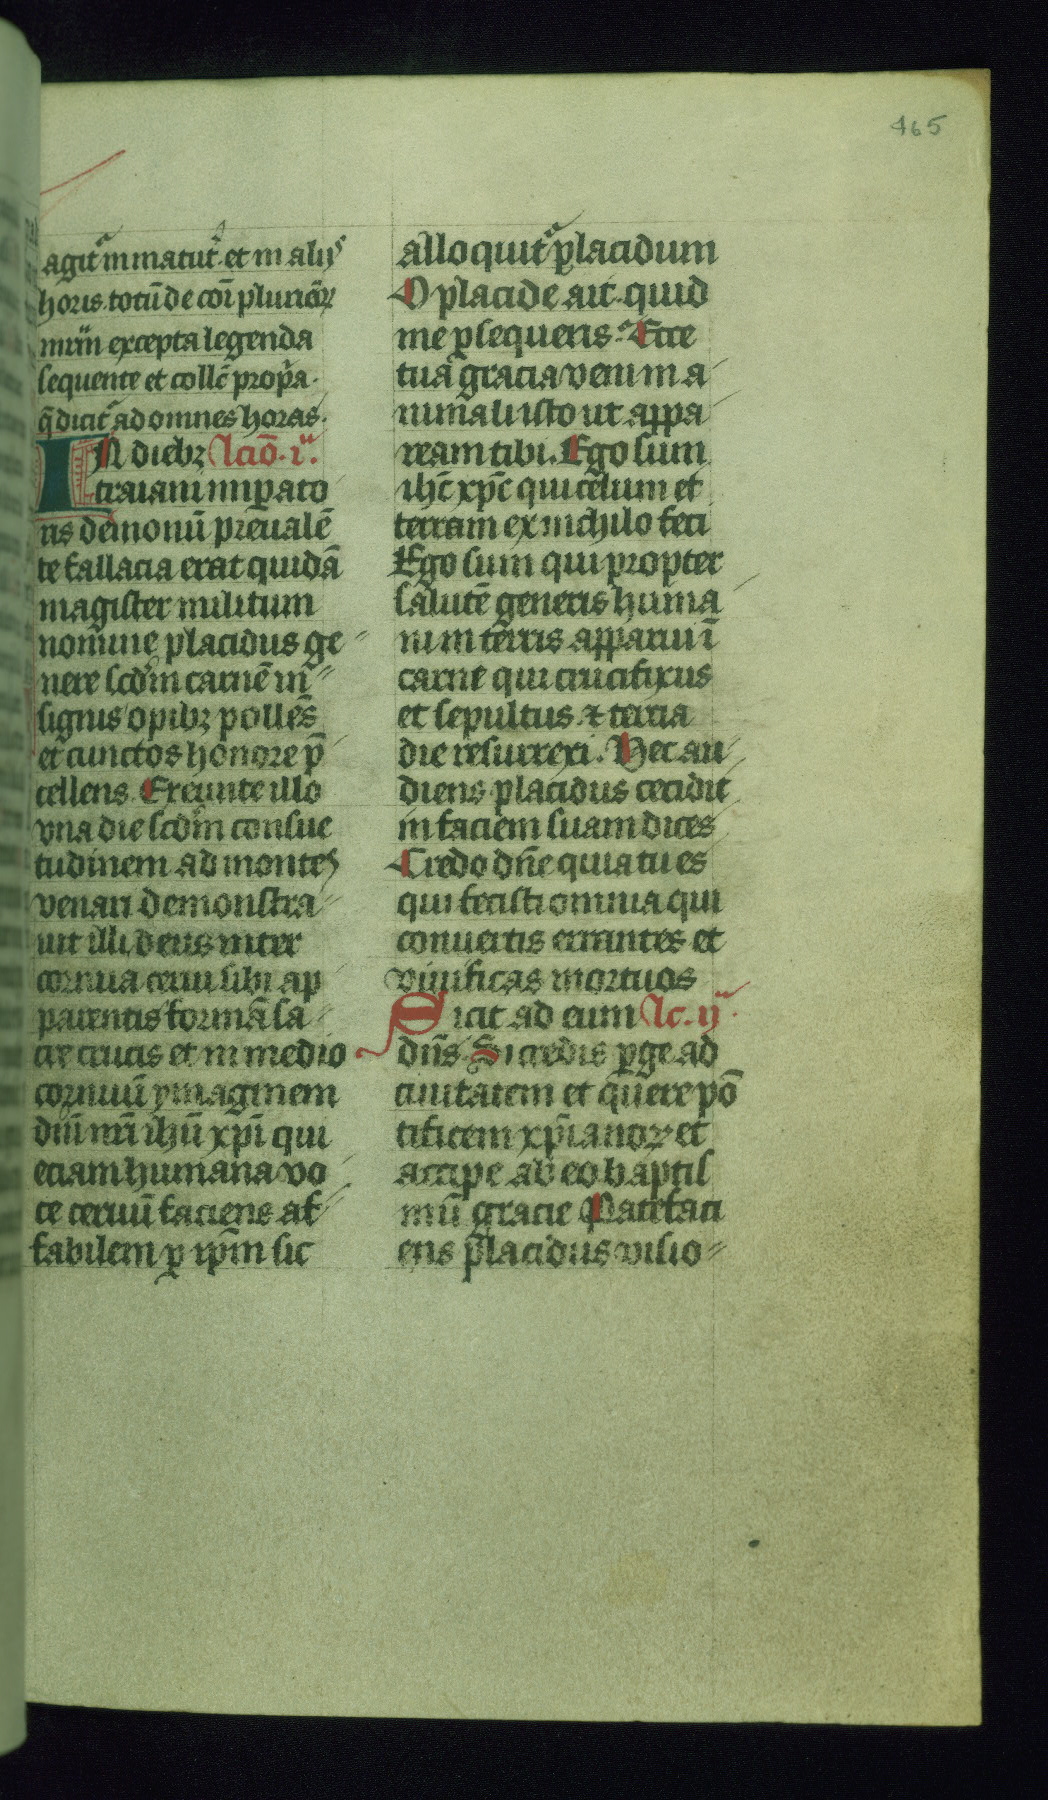 465
agit᷑ in matut᷑ et in alijs
horis totū de cōi plurimoꝝ
mr̄m excepta legenda
sequente et collc̄ propͥa
q̄ dicit᷑ ad omnes horas.
IN diebꝫ Lc̄io. i.ᵃ
traiani impato
ris demonū preualē
te fallacia erat quidā
magister militum
nomine placidus ge
nere scdm̄ carnē in
signis opibꝫ pollēs
et cunctos honore p̄
cellens. Exeunte illo
vna die scdm̄ consue
tudinem ad montes
venari demonstra
uit illi deus inter
cornua cerui sibi ap
parentis formā sa
cre crucis et in medio
cornuū ymaginem
dn̄i nr̄i ihū xp̄i qui
eciam humana vo
ce ceruū faciens af
fabilem ꝑ ip̄m sic
alloquit᷑ placidum
O placide ait quid
me ꝑsequeris. Ecce
tuā gracia veni in a
nimali isto ut appa
ream tibi. Ego sum
ihc̄ xpc̄ qui celum et
terram ex nichilo feci
Ego sum qui propter
salutē generis huma
ni in terris apparui ī
carne qui crucifixus
et sepultus ⁊ tercia
die resurrexi. Hec au
diens placidus cecidit
in faciem suam dicēs
Credo dn̄e quia tu es
qui fecisti omnia qui
conuertis errantes et
viuificas mortuos
Dicit ad eum Lc. ij.ᵃ
dn̄s. Si credis ꝑge ad
ciuitatem et quere pō
tificem xp̄ianoꝝ et
accipe ab eo baptis
mū gracie Patefaci
ens placidus visio